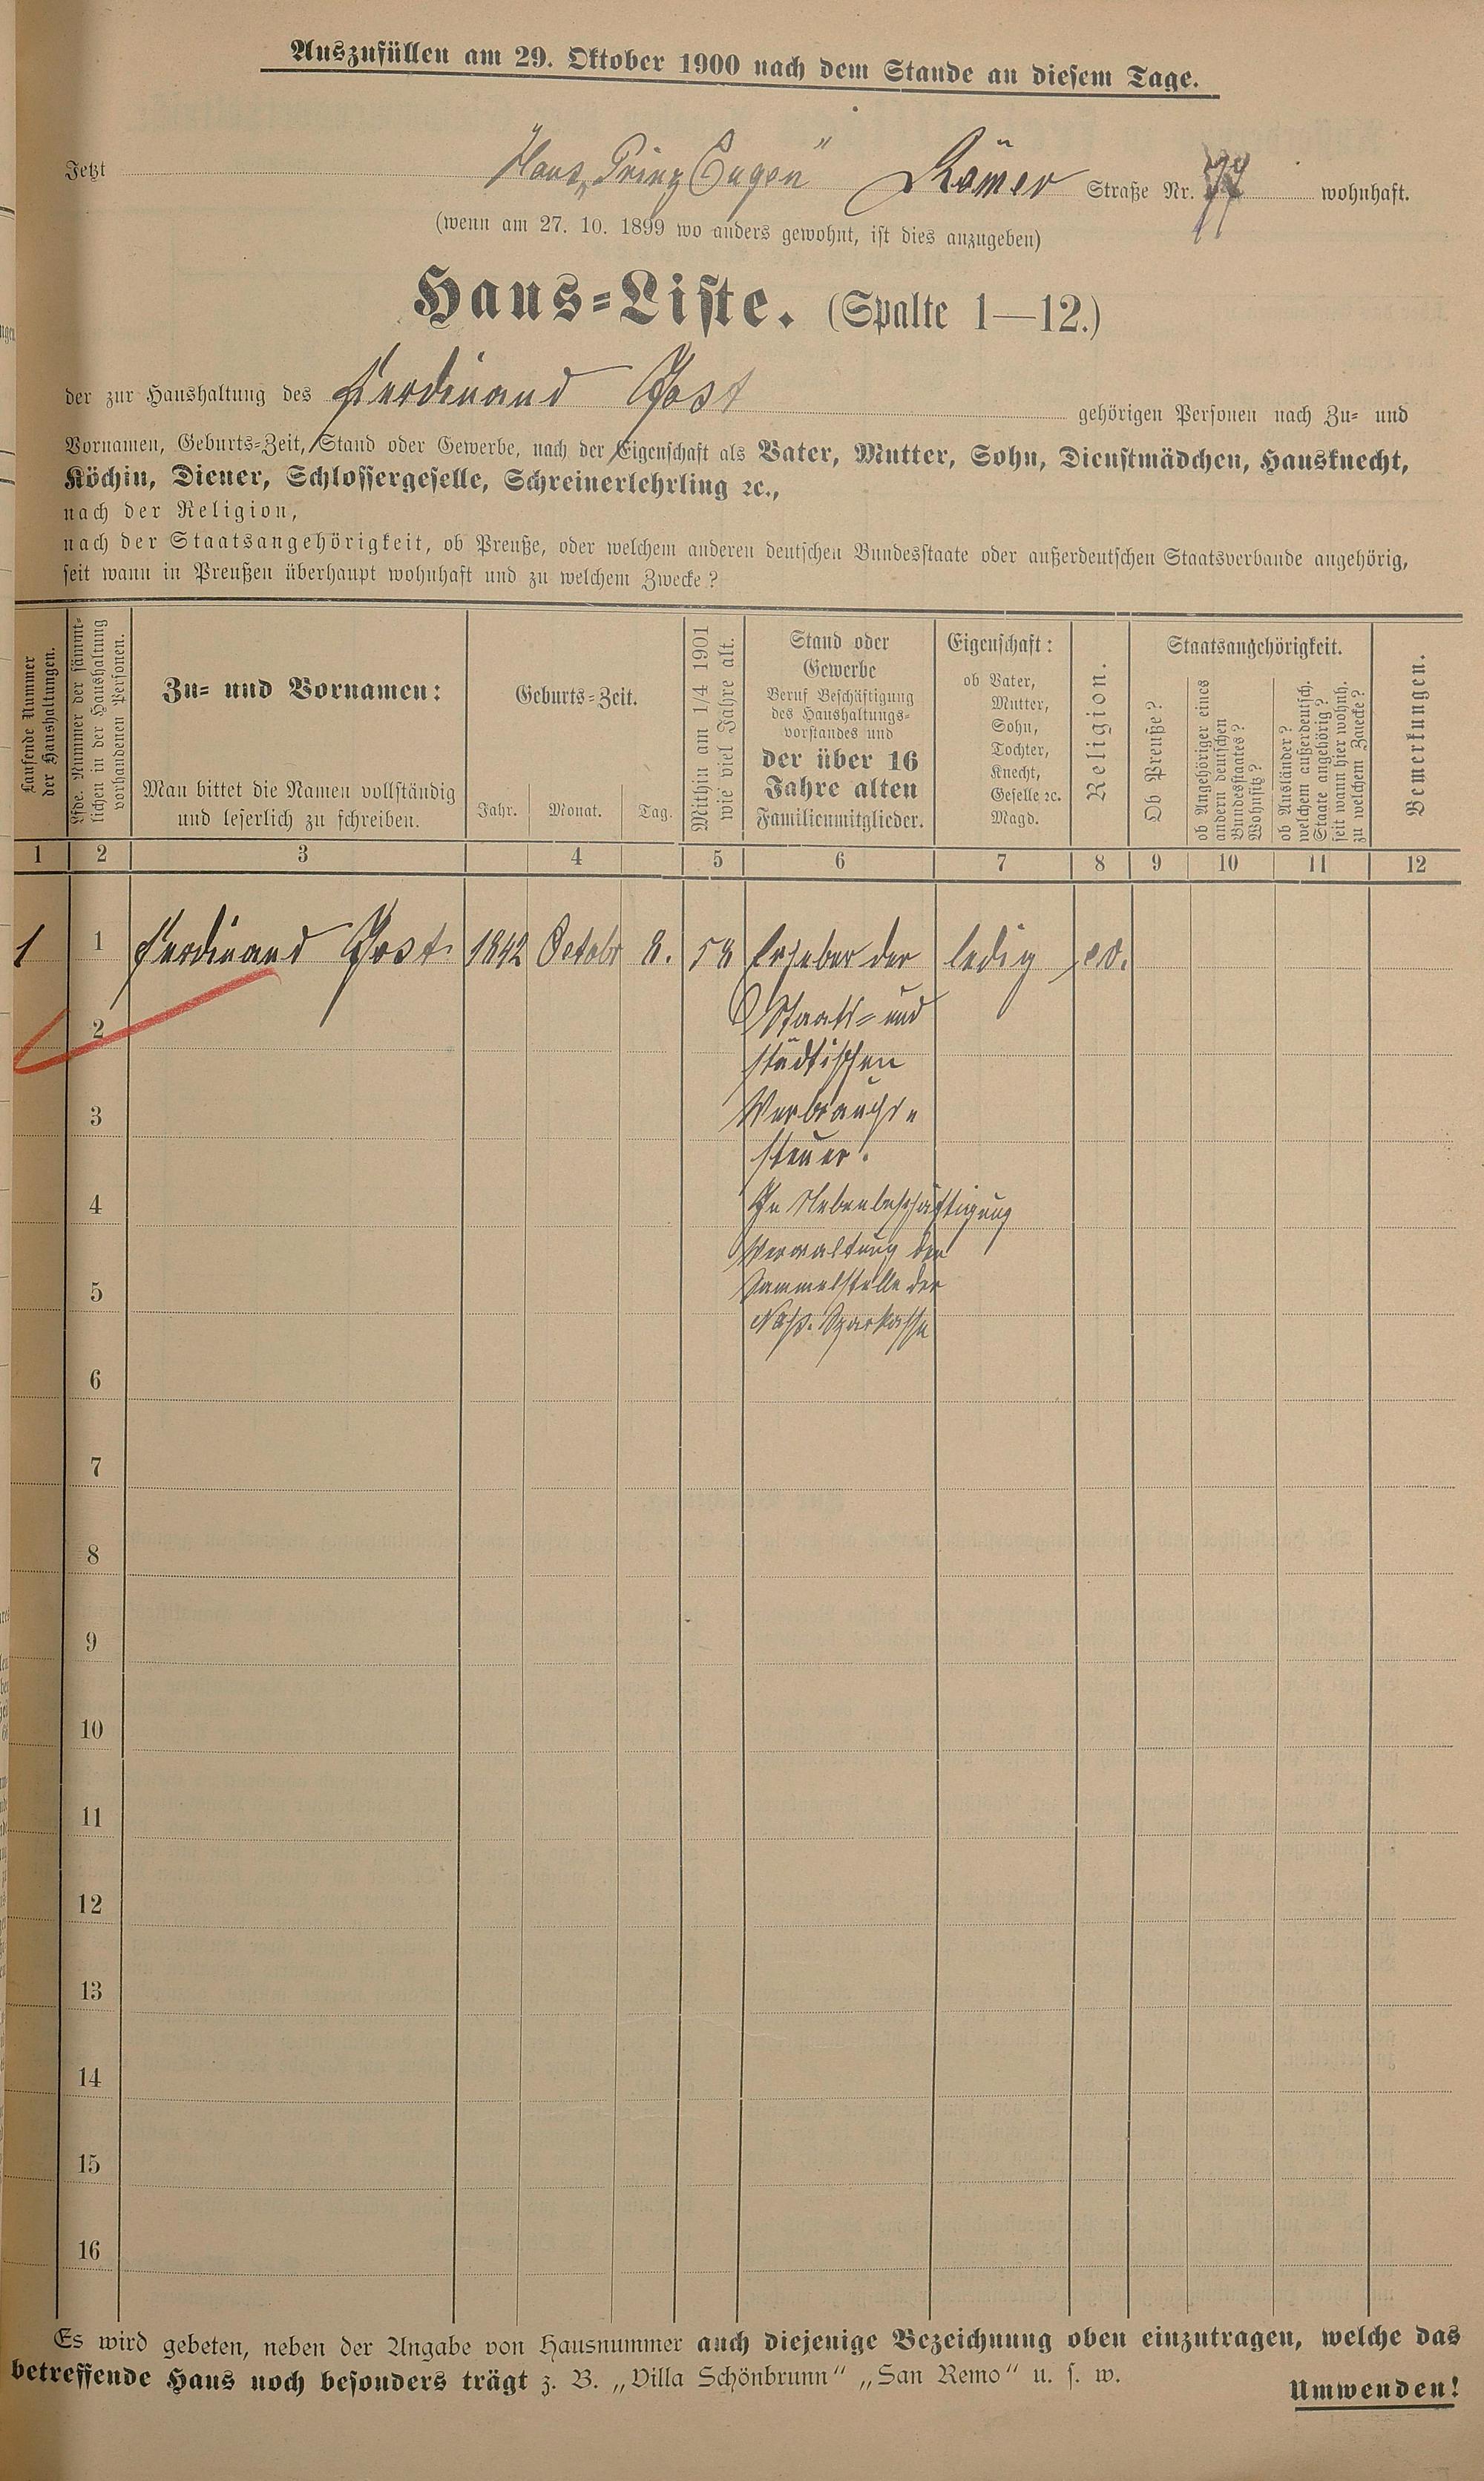 Auszufüllen am 29. Oktober 1900 nach dem Stande an diesem Tage.
Jetzt Haus „Prinz Eugen“ Römer Straße Nr. wohnhaft.
(wenn am 27. 10. 1899 wo anders gewohnt, ist dies anzugeben)
Haus-Liste. (Spalte 1—12.)
der zur Haushaltung des Ferdinand Jost gehörigen Personen nach Zu- und
Vornamen, Geburts-Zeit, Stand oder Gewerbe, nach der Eigenschaft als Vater, Mutter, Sohn, Dienstmädchen, Hausknecht,
Köchin, Diener, Schlossergeselle, Schreinerlehrling ꝛc.,
nach der Religion,
nach der Staatsangehörigkeit, ob Preuße, oder welchem anderen deutschen Bundesstaate oder außerdeutschen Staatsverbande angehörig,
seit wann in Preußen überhaupt wohnhaft und zu welchem Zwecke?
Laufende Nummer
der Haushaltungen.
Lfde. Nummer der sämmt-
lichen in der Haushaltung
vorhandenen Personen.
Zu- und Vornamen:
Man bittet die Namen vollständig
und leserlich zu schreiben.
Geburts-Zeit.
Jahr. Monat. Tag.
Mithin am 1/4 1901
wie viel Jahre alt.
Stand oder
Gewerbe
Beruf Beschäftigung
des Haushaltungs-
vorstandes und
der über 16
Jahre alten
Familienmitglieder.
Eigenschaft:
ob Vater,
Mutter,
Sohn,
Tochter,
Knecht,
Geselle ꝛc.
Magd.
Religion.
Staatsangehörigkeit.
Ob Preuße?
ob Angehöriger eines
andern deutschen
Bundesstaates?
Wohnsitz?
ob Ausländer?
welchem außerdeutsch.
Staate angehörig?
seit wann hier wohnh.
zu welchem Zwecke?
Bemerkungen.
1 2 3 4 5 6 7 8 9 10 11 12
1 1 Ferdinand Jost. 1842 Octobr 8. 58 Erheber der ledig ev.
2 Staats- und
städtischen
3 Verbrauchs-
steuer.
4 In Nebenbeschäftigung
Verwaltung der
5 Sammelstelle der
Nass. Sparkasse
6
7
8
9
10
11
12
13
14
15
16
Es wird gebeten, neben der Angabe von Hausnummer auch diejenige Bezeichnung oben einzutragen, welche das
betreffende Haus noch besonders trägt z. B. „Villa Schönbrunn“ „San Remo“ u. s. w.
Umwenden!